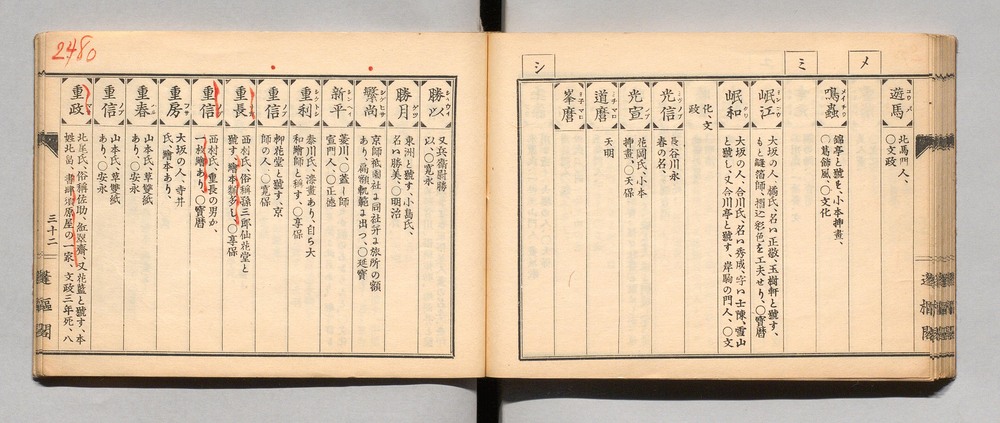 メ
ミ
シ
遊馬
北馬門人、
〇文政
鳴蟲
錦亭と號を、小本挿畫、
〇葛飾風、〇文化
岷江
大坂の人、橘氏、名ハ正敬、玉樹軒と號す、
もと縫箔師、摺込彩色を工夫せり、〇寶暦
岷和
大坂の人、合川氏、名ハ秀成、字ハ士陳、雪山
と號し、又合川亭と號す、岸駒の門人、〇文
化、文
政
光信
長谷川永
春の名、
光宣
花岡氏、小本
挿畫、〇天保
道麿
天明
峯麿
勝以
又兵衛尉勝
以、〇寛永
勝月
東洲と號す、小島氏、
名ハ勝美、〇明治
繁尚
京師祗園社ム同社并ム旅所の額
あり、扁額軌範ム出つ、〇延寶
新平
菱川、〇蓋し師
宣門人、〇正徳
重利
泰川氏、漆畫あり、自ら大
和繪師と稱す、〇享保
重信
柳花堂と號す、京
師の人、〇寛保
重長
西村氏、俗稱孫三郎、仙花堂と
號す、繪本類多し、〇享保
重信
西村氏、重長の男か、
一枚繪あり、〇寶暦
重房
大坂の人、寺井
氏、繪本あり、
重春
山本氏、草雙紙
あり、〇安永
重信
山本氏、草雙紙
あり、〇安永
重政
北尾氏、俗稱佐助、紅翠齋、又花藍と號す、本
姓北畠、書肆須原屋の一家、文政三年死、八
三十二
2480